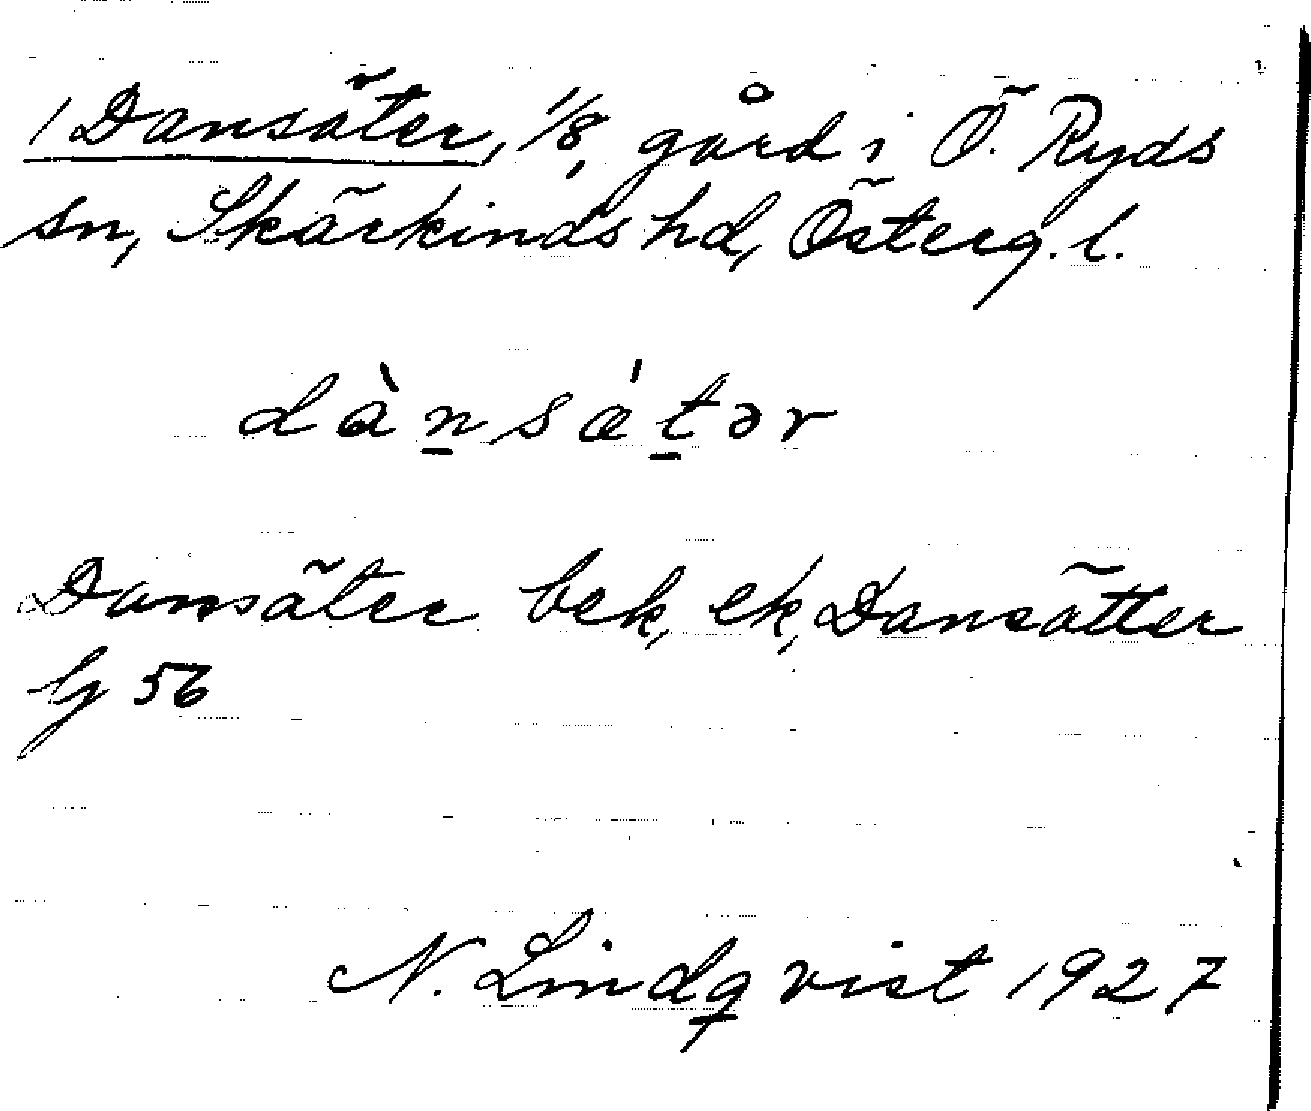 1 Dansäter, 1/8, gård i Ö. Ryds
sn, Skärkinds hd, Österg. l.
dànsǽtər
Dansäter bek, ek, Dansätter
Gj 56
N. Lindqvist 1927